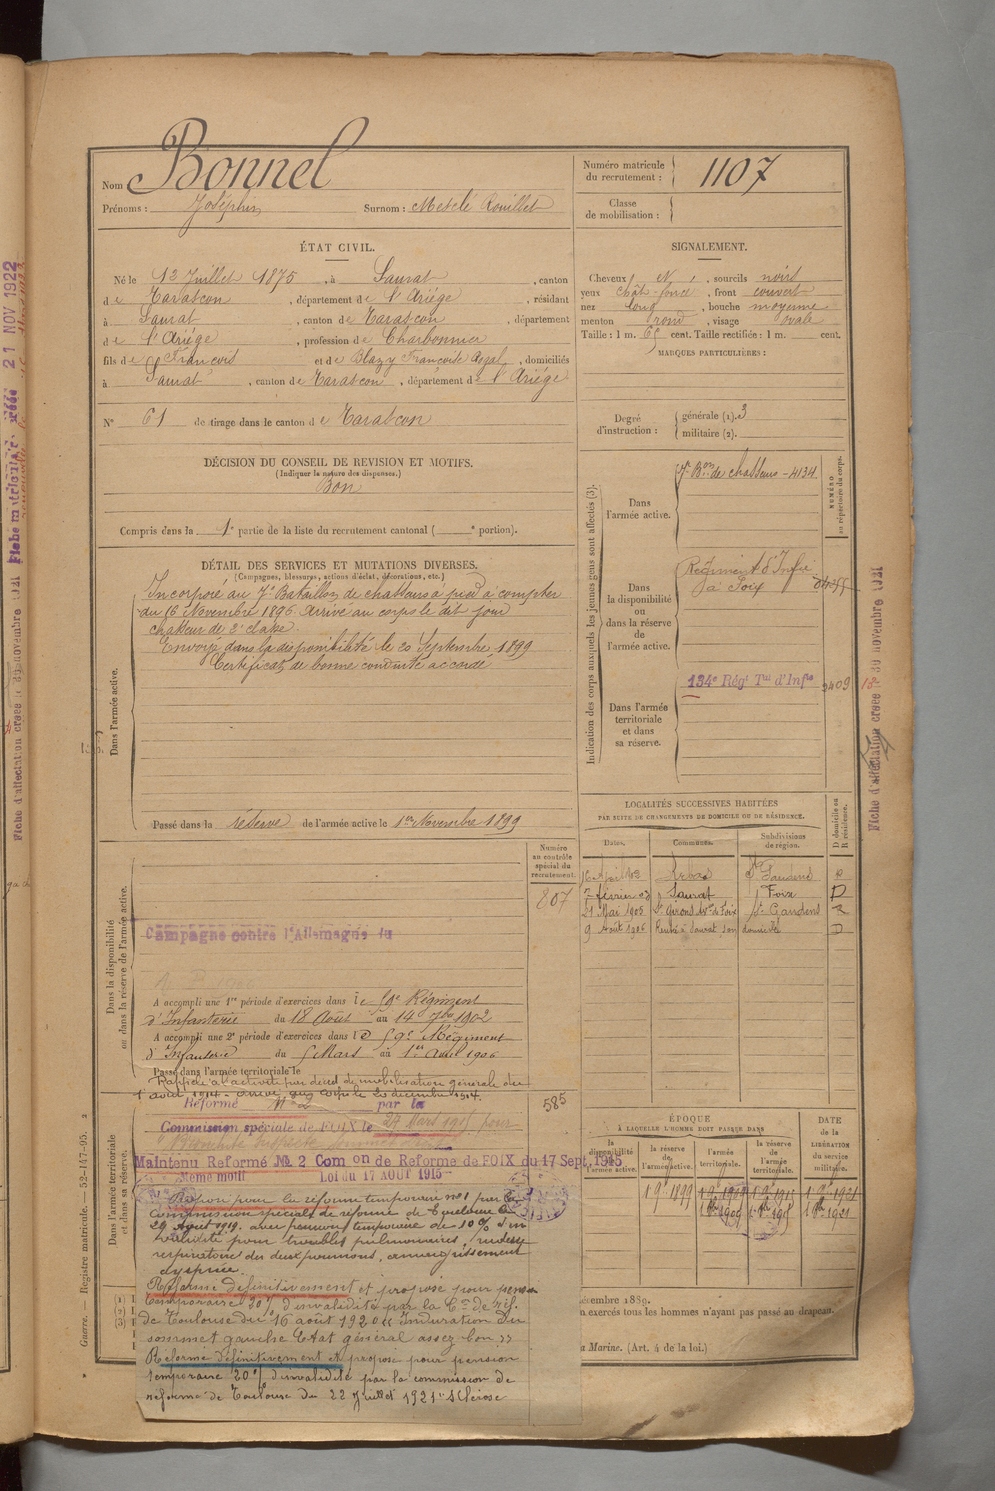 Nom Bonnel
Prénoms : Joséphin Surnom : Mesclé Rouillet
Numéro matricule du recrutement : 1107
Classe de mobilisation :
ÉTAT CIVIL.
Né le 13 Juillet 1875, à Saurat, canton
de Tarascon, département de l'Ariége, résidant
à Saurat, canton de Tarascon, département
de l'Ariége, profession de Charbonnier
fils de François et de Blazy Françoise, domiciliés
à Saurat, canton de Tarascon, département de l'Ariége
N° 61 de tirage dans le canton de Tarascon
DÉCISION DU CONSEIL DE REVISION ET MOTIFS.
(Indiquer la nature des dispenses.)
Bon
Compris dans la 1e partie de la liste du recrutement cantonal ( e portion).
SIGNALEMENT.
Cheveux N, sourcils noirs
yeux chât. foncé, front couvert
nez long, bouche moyenne
menton rond, visage ovale
Taille : 1 m. 65 cent. Taille rectifiée : 1 m. cent.
MARQUES PARTICULIÈRES :
Degré d'instruction : générale (1). 3
militaire (2).
DÉTAIL DES SERVICES ET MUTATIONS DIVERSES.
(Campagnes, blessures, actions d'éclat, décorations, etc.)
Dans l'armée active.
Incorporé au 7e Bataillon de chasseurs à pied à compter
du 16 Novembre 1896. Arrivé au corps le dit jour
chasseur de 2e classe.
Envoyé dans la disponibilité le 20 Septembre 1899
Certificat de bonne conduite accordé
Passé dans la réserve de l'armée active le 1er Novembre 1899
Indication des corps auxquels les jeunes gens sont affectés (3).
NUMÉRO au répertoire du corps.
Dans l'armée active.
7e Bon de chasseurs - 4134
Dans la disponibilité ou dans la réserve de l'armée active.
Régiment d'Infie
à Foix
Dans l'armée territoriale et dans sa réserve.
134e Régt Tal d'Infie 3409
LOCALITÉS SUCCESSIVES HABITÉES
PAR SUITE DE CHANGEMENTS DE DOMICILE OU DE RÉSIDENCE.
Dates. Communes. Subdivisions de région. D domicile ou R résidence.
février 03 Saurat Foix D
21 Mai 1905 St Girons St Gaudens R
9 Août 1906 Rentré à Saurat son domicile D
Dans la disponibilité ou dans la réserve de l'armée active.
Numéro au contrôle spécial du recrutement.
807
Campagne contre l'Allemagne du
A accompli une 1re période d'exercices dans le 59e Régiment
d'Infanterie du 18 Août au 14 7bre 1902
A accompli une 2e période d'exercices dans le 59e Régiment
d'Infanterie du 5 Mars au 1er Avril 1906
Passé dans l'armée territoriale le
Rappelé à l'activité par décret de mobilisation générale du
1er août 1914. arrivé au corps le 20 décembre 1914.
585
Dans l'armée territoriale et dans sa réserve.
Réformé N° 2 par la
Commission spéciale de FOIX le 27 Mars 1915 pour
Maintenu Reformé No 2 Com on de Reforme de FOIX du 17 Sept. 1915
Meme motif Loi du 17 AOUT 1915
pour la réforme temporaire n° 1 par la
Commission spéciale de réforme de Toulouse du
29 Août 1919. avec pension temporaire de 10 % d'in
validité pour troubles pulmonaires, rudesse
respiratoire des deux poumons, amaigrissement
dyspnée.
Réformé définitivement et proposé pour pension
temporaire 30 % d'invalidité par la Con de réf.
de Toulouse du 16 août 1920 "Induration du
sommet gauche Etat général assez bon"
Réformé définitivement et proposé pour pension
temporaire 20 % d'invalidité par la commission de
réforme de Toulouse du 22 Juillet 1921 "Sclérose
ÉPOQUE
À LAQUELLE L'HOMME DOIT PASSER DANS
la disponibilité de l'armée active. la réserve de l'armée active. l'armée territoriale. la réserve de l'armée territoriale.
DATE de la LIBÉRATION du service militaire.
1 9e 1899 1 9e 1909 1 9e 1915 1 9e 1921
écembre 1889.
n exercés tous les hommes n'ayant pas passé au drapeau.
a Marine. (Art. 4 de la loi.)
Guerre. — Registre matricule. — 52-147-95.
21 NOV 1922
Fiche d'affectation créée le 30 novembre 1921
Fiche d'affectation créée le 30 novembre 1921